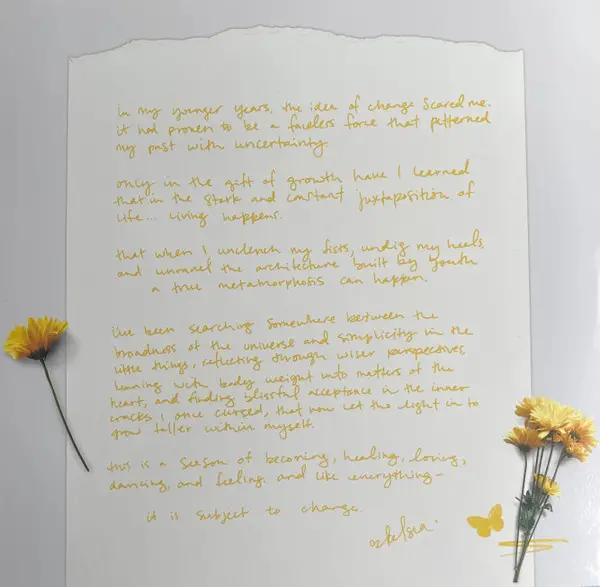 in my younger years, the idea of change scared me.
it had proven to be a faceless force that patterned
my past with uncertainty.
only in the gift of growth have I learned
that in the stark and constant juxtaposition of
life... living happens.
that when I unclench my fists, undig my heels,
and unravel the architecture built by youth
a true metamorphosis can happen.
i've been searching somewhere between the
broadness of the universe and simplicity in the
little things, reflecting through wiser perspectives,
leaning with body weight into matters of the
heart, and finding blissful acceptance in the inner
cracks I once cursed, that now let the light in to
grow taller within myself.
this is a season of becoming, healing, loving,
dancing, and feeling. and like everything—
it is subject to change.